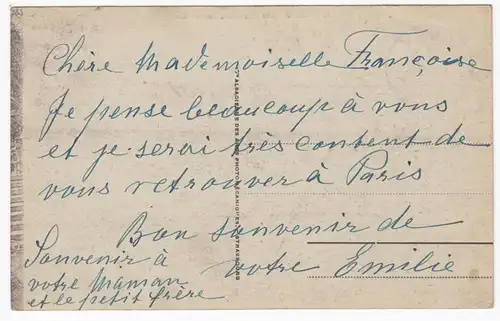 Chère Mademoiselle Françoise
Je pense beaucoup à vous
et je serai très content de
vous retrouver à Paris
Bon souvenir de
votre Emilie
Souvenir à
votre Maman
et le petit frère